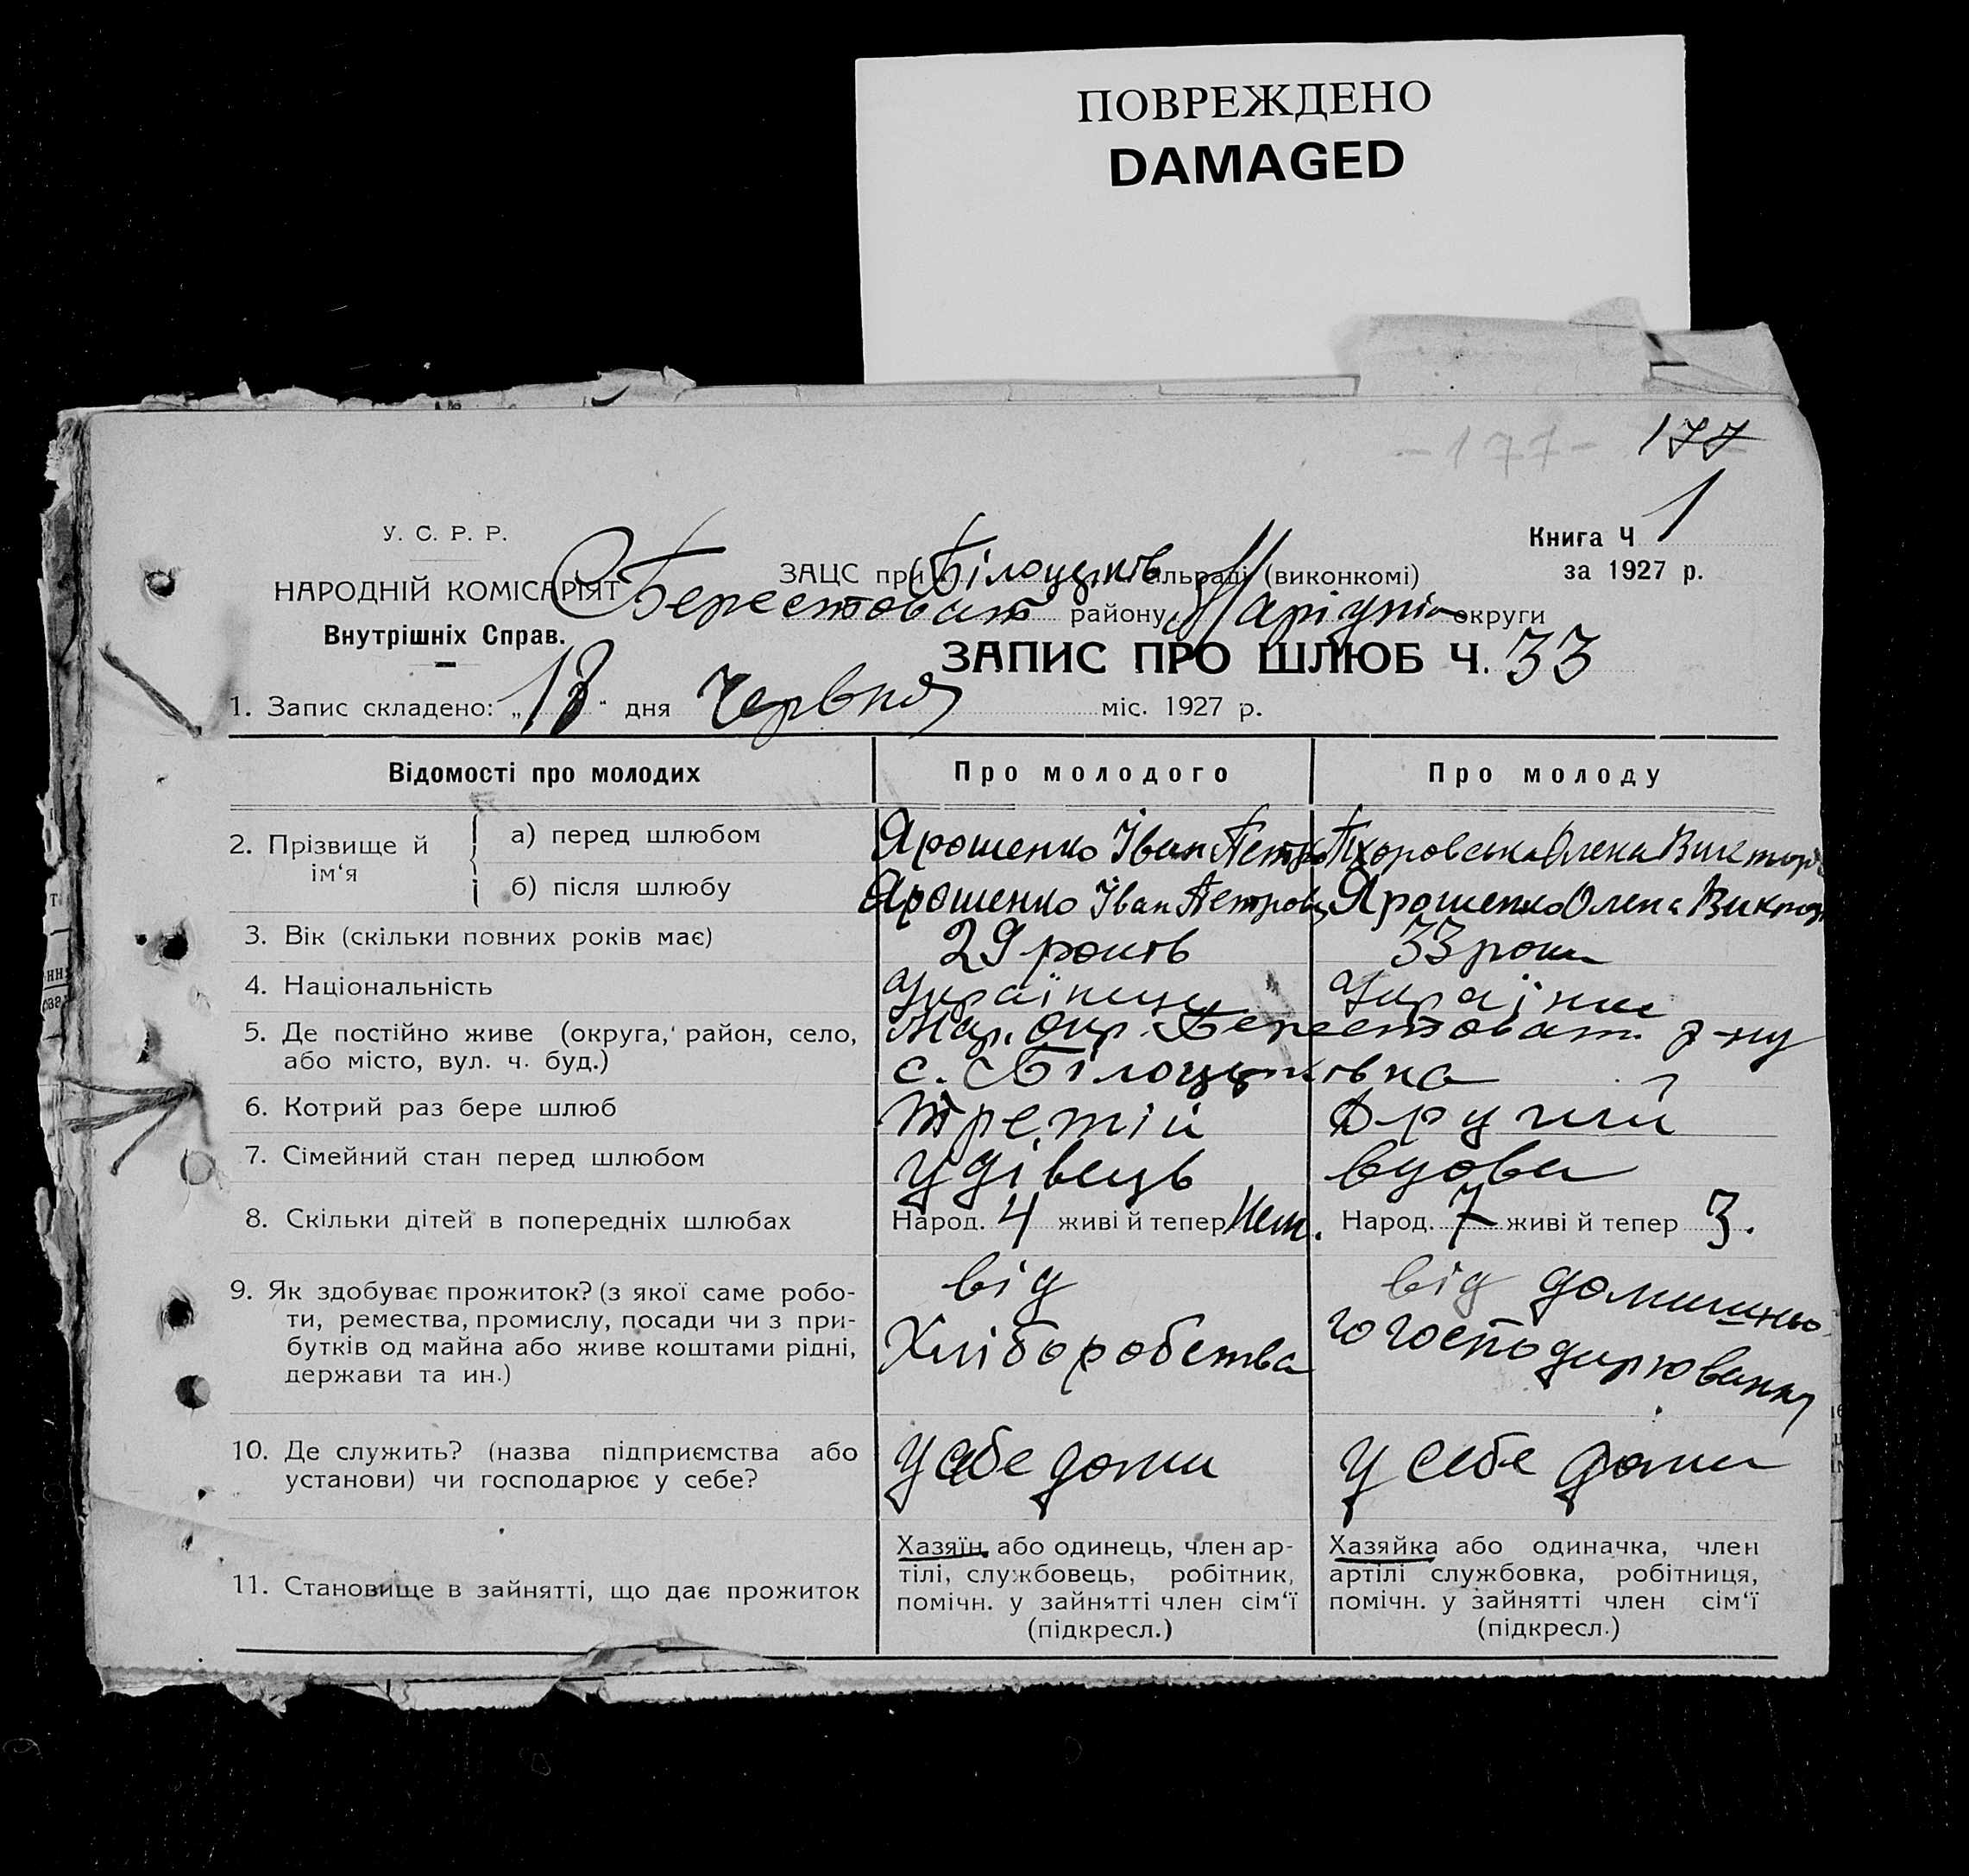 ПОВРЕЖДЕНО
DAMAGED
-177- 177
У. С. Р. Р.
НАРОДНІЙ КОМІСАРІЯТ
Внутрішніх Справ.
Книга Ч 1
за 1927 р.
ЗАЦС при Білоцерків сільраді (виконкомі)
Берестоват району Маріупіл округи
ЗАПИС ПРО ШЛЮБ Ч. 33
1. Запис складено: „18“ дня Червня міс. 1927 р.
Відомості про молодих Про молодого Про молоду
2. Прізвище й ім‘я
а) перед шлюбом Ярошенко Іван Петро Олена Виктор
б) після шлюбу Ярошенко Іван Петров Ярошенко Олена Виктор
3. Вік (скільки повних років має) 29 років 33 роки
4. Національність Українець Українк
5. Де постійно живе (округа, район, село, або місто, вул. ч. буд.) Мар. окр. Берестоват. р-ну
с.
6. Котрий раз бере шлюб третій другий
7. Сімейний стан перед шлюбом удівець вдова
8. Скільки дітей в попередніх шлюбах Народ. 4 живі й тепер Нет. Народ. 7 живі й тепер 3.
9. Як здобуває прожиток? (з якої саме робо-
ти, ремества, промислу, посади чи з при-
бутків од майна або живе коштами рідні,
держави та ин.)
від
Хліборобства
від домишньо
го господарювання
10. Де служить? (назва підприємства або
установи) чи господарює у себе?
У себе дома
У себе дома
11. Становище в зайнятті, що дає прожиток
Хазяїн, або одинець, член ар-
тілі, службовець, робітник,
помічн. у зайнятті член сім‘ї
(підкресл.)
Хазяйка або одиначка, член
артілі службовка, робітниця,
помічн. у зайнятті член сім‘ї
(підкресл.)